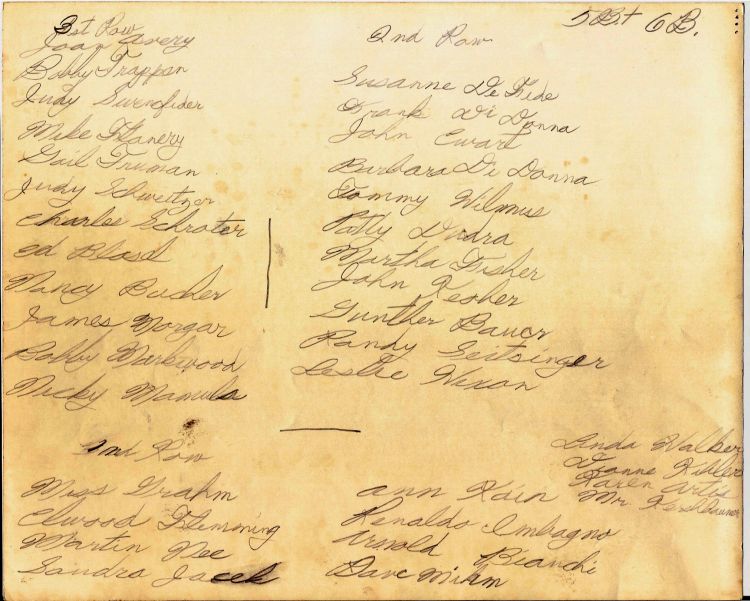 5B+ 6B.
1st Row
Joan Avery
Bobby Trappen
Judy Swenofider
Mike Flanery
Gail Truman
Judy Schweitzer
Charles Schroter
Ed Blasd
Nancy Bucher
James Morgar
Bobby Markwood
Nicky Mamula
2nd Row
Susanne De Fide
Frank Di Donna
John Ewart
Barbara Di Donna
Tommy Wilmus
Patty Dudra
Martha Fisher
John Kesher
Gunther Bauer
Randy Seitsinger
Leslie Nixon
2nd Row
Miss Grahm
Elwood Flemming
Martin Nee
Sandra Jacek
Ann Kain
Renaldo Imbagno
Arnold Bianchi
Dave Mihm
Linda Walker
Dianne Kibler
Karen Artis
Mr.